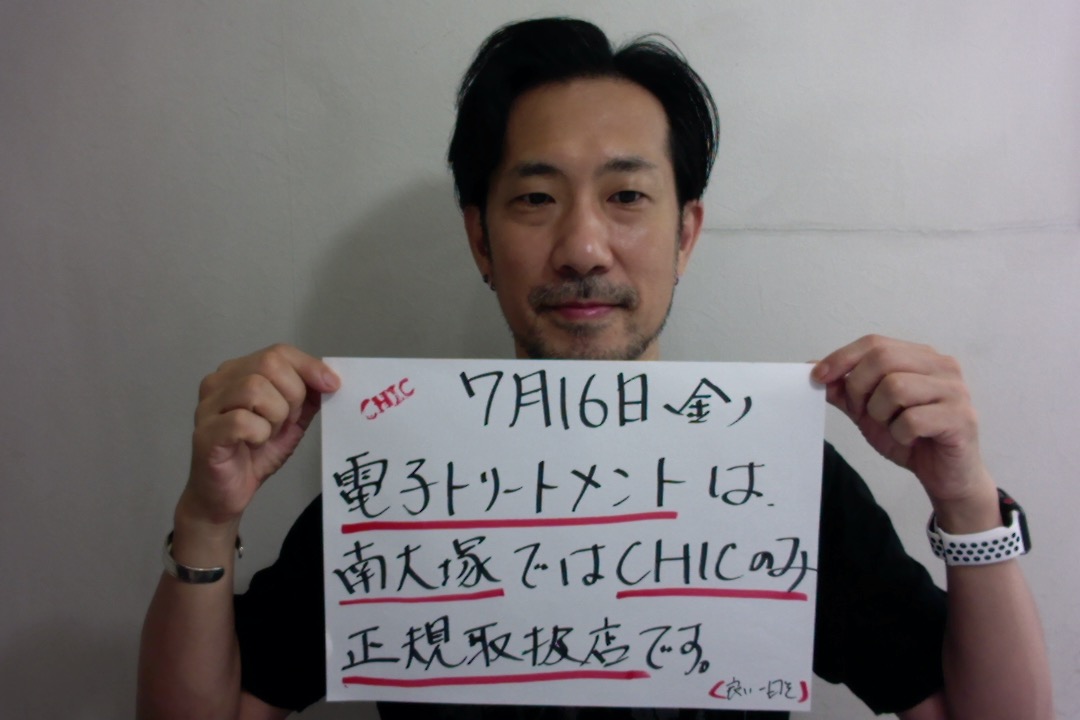 CHIC 7月16日(金)
電子トリートメントは、
南大塚ではCHICのみ
正規取扱店です。
(良い一日を)